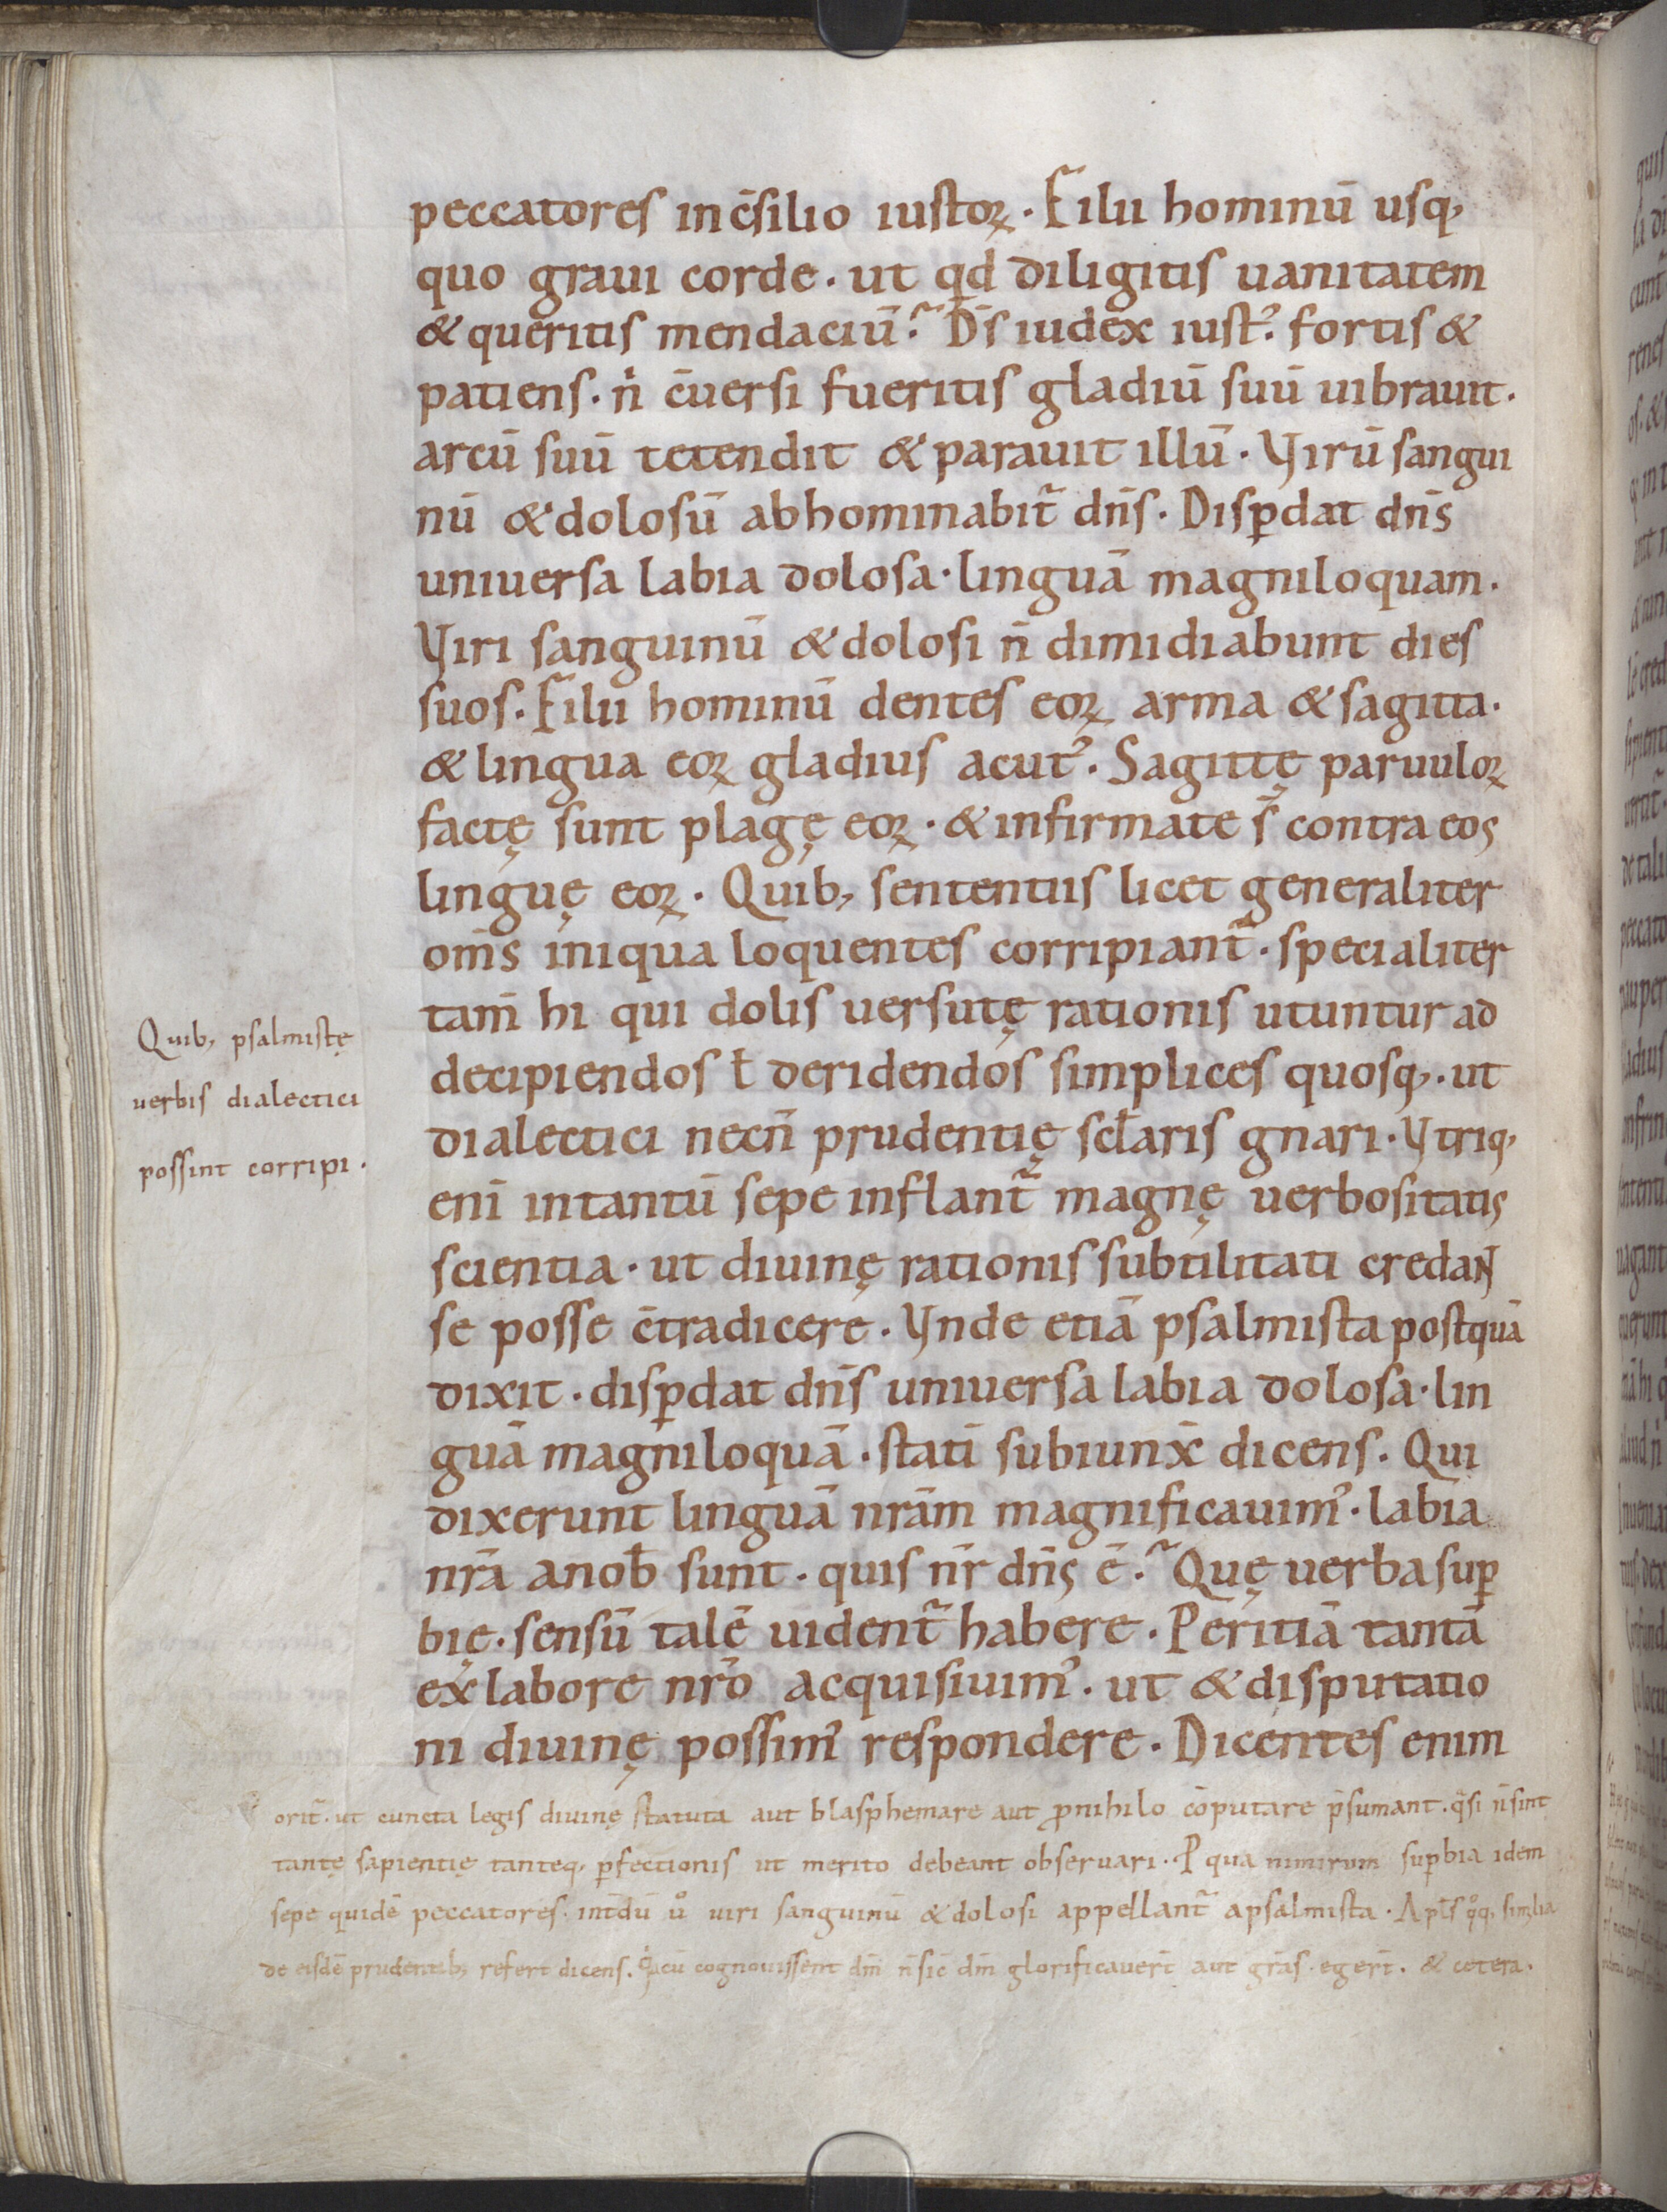 peccatores in c̄silio iustoꝝ. Filii hominū usq;
quo graui corde. ut qd diligitis uanitatem
& queritis mendaciū? D̄s iudex iustꝰ. fortis &
patiens. n̄ c̄uersi fueritis gladiū suū uibrauit.
arcū suū tetendit & parauit illū. Virū sangui
nū & dolosū abhominabit᷑ dn̄s. Disꝑdat dn̄s
uniuersa labia dolosa. linguā magniloquam.
Viri sanguinū & dolosi n̄ dimidiabunt dies
suos. Filii hominū dentes eoꝝ arma & sagitta.
& lingua eoꝝ gladius acutꝰ. Sagittę paruuloꝝ
factę sunt plagę eoꝝ. & infirmate s̄ contra eos
linguę eoꝝ. Quib; sententiis licet generaliter
om̄s iniqua loquentes corripiant᷑. specialiter
tam̄ hi qui dolis uersutę rationis utuntur ad
decipiendos ł deridendos simplices quosq;. ut
dialectici necn̄ prudentię scłaris gnari. Vtriq;
eni̅ intantū sepe inflant᷑ magnę uerbositatis
scientia. ut diuinę rationis subtilitati credant
se posse c̄tradicere. Vnde etiā psalmista postquā
dixit. disꝑdat dn̄s uniuersa labia dolosa. lin
guā magniloquā. stati̅ subiunx̄ dicens. Qui
dixerunt linguā nr̄am magnificauimꝰ. labia
nr̄a a nob̄ sunt. quis nr̄ dn̄s ē? Quę uerba suꝑ
bię. sensū talē uident᷑ habere. Peritiā tantā
ex labore nr̄o acquisiuimꝰ. ut & disputatio
ni diuinę possimꝰ respondere. Dicentes enim
Quib; psalmistę
uerbis dialectici
possint corripi.
orit᷑. ut cuncta legis diuinę statuta aut blasphemare aut ꝓnihilo cōputare p̄sumant. q̄si n̄ sint
tantę sapientię tanteq; ꝑfectionis ut merito debeant obseruari. P qua nimirum suꝑbia idem
sepe quidē peccatores. int̄dū uͦ uiri sanguinū & dolosi appellant᷑ a psalmista. Apłs qͦq; similia
de eisdē prudentib; refert dicens. qͥa cū cognouissent dm̄ n̄ sic̄ dm̄ glorificauer̄t aut gr̄as eger̄t. & cetera.